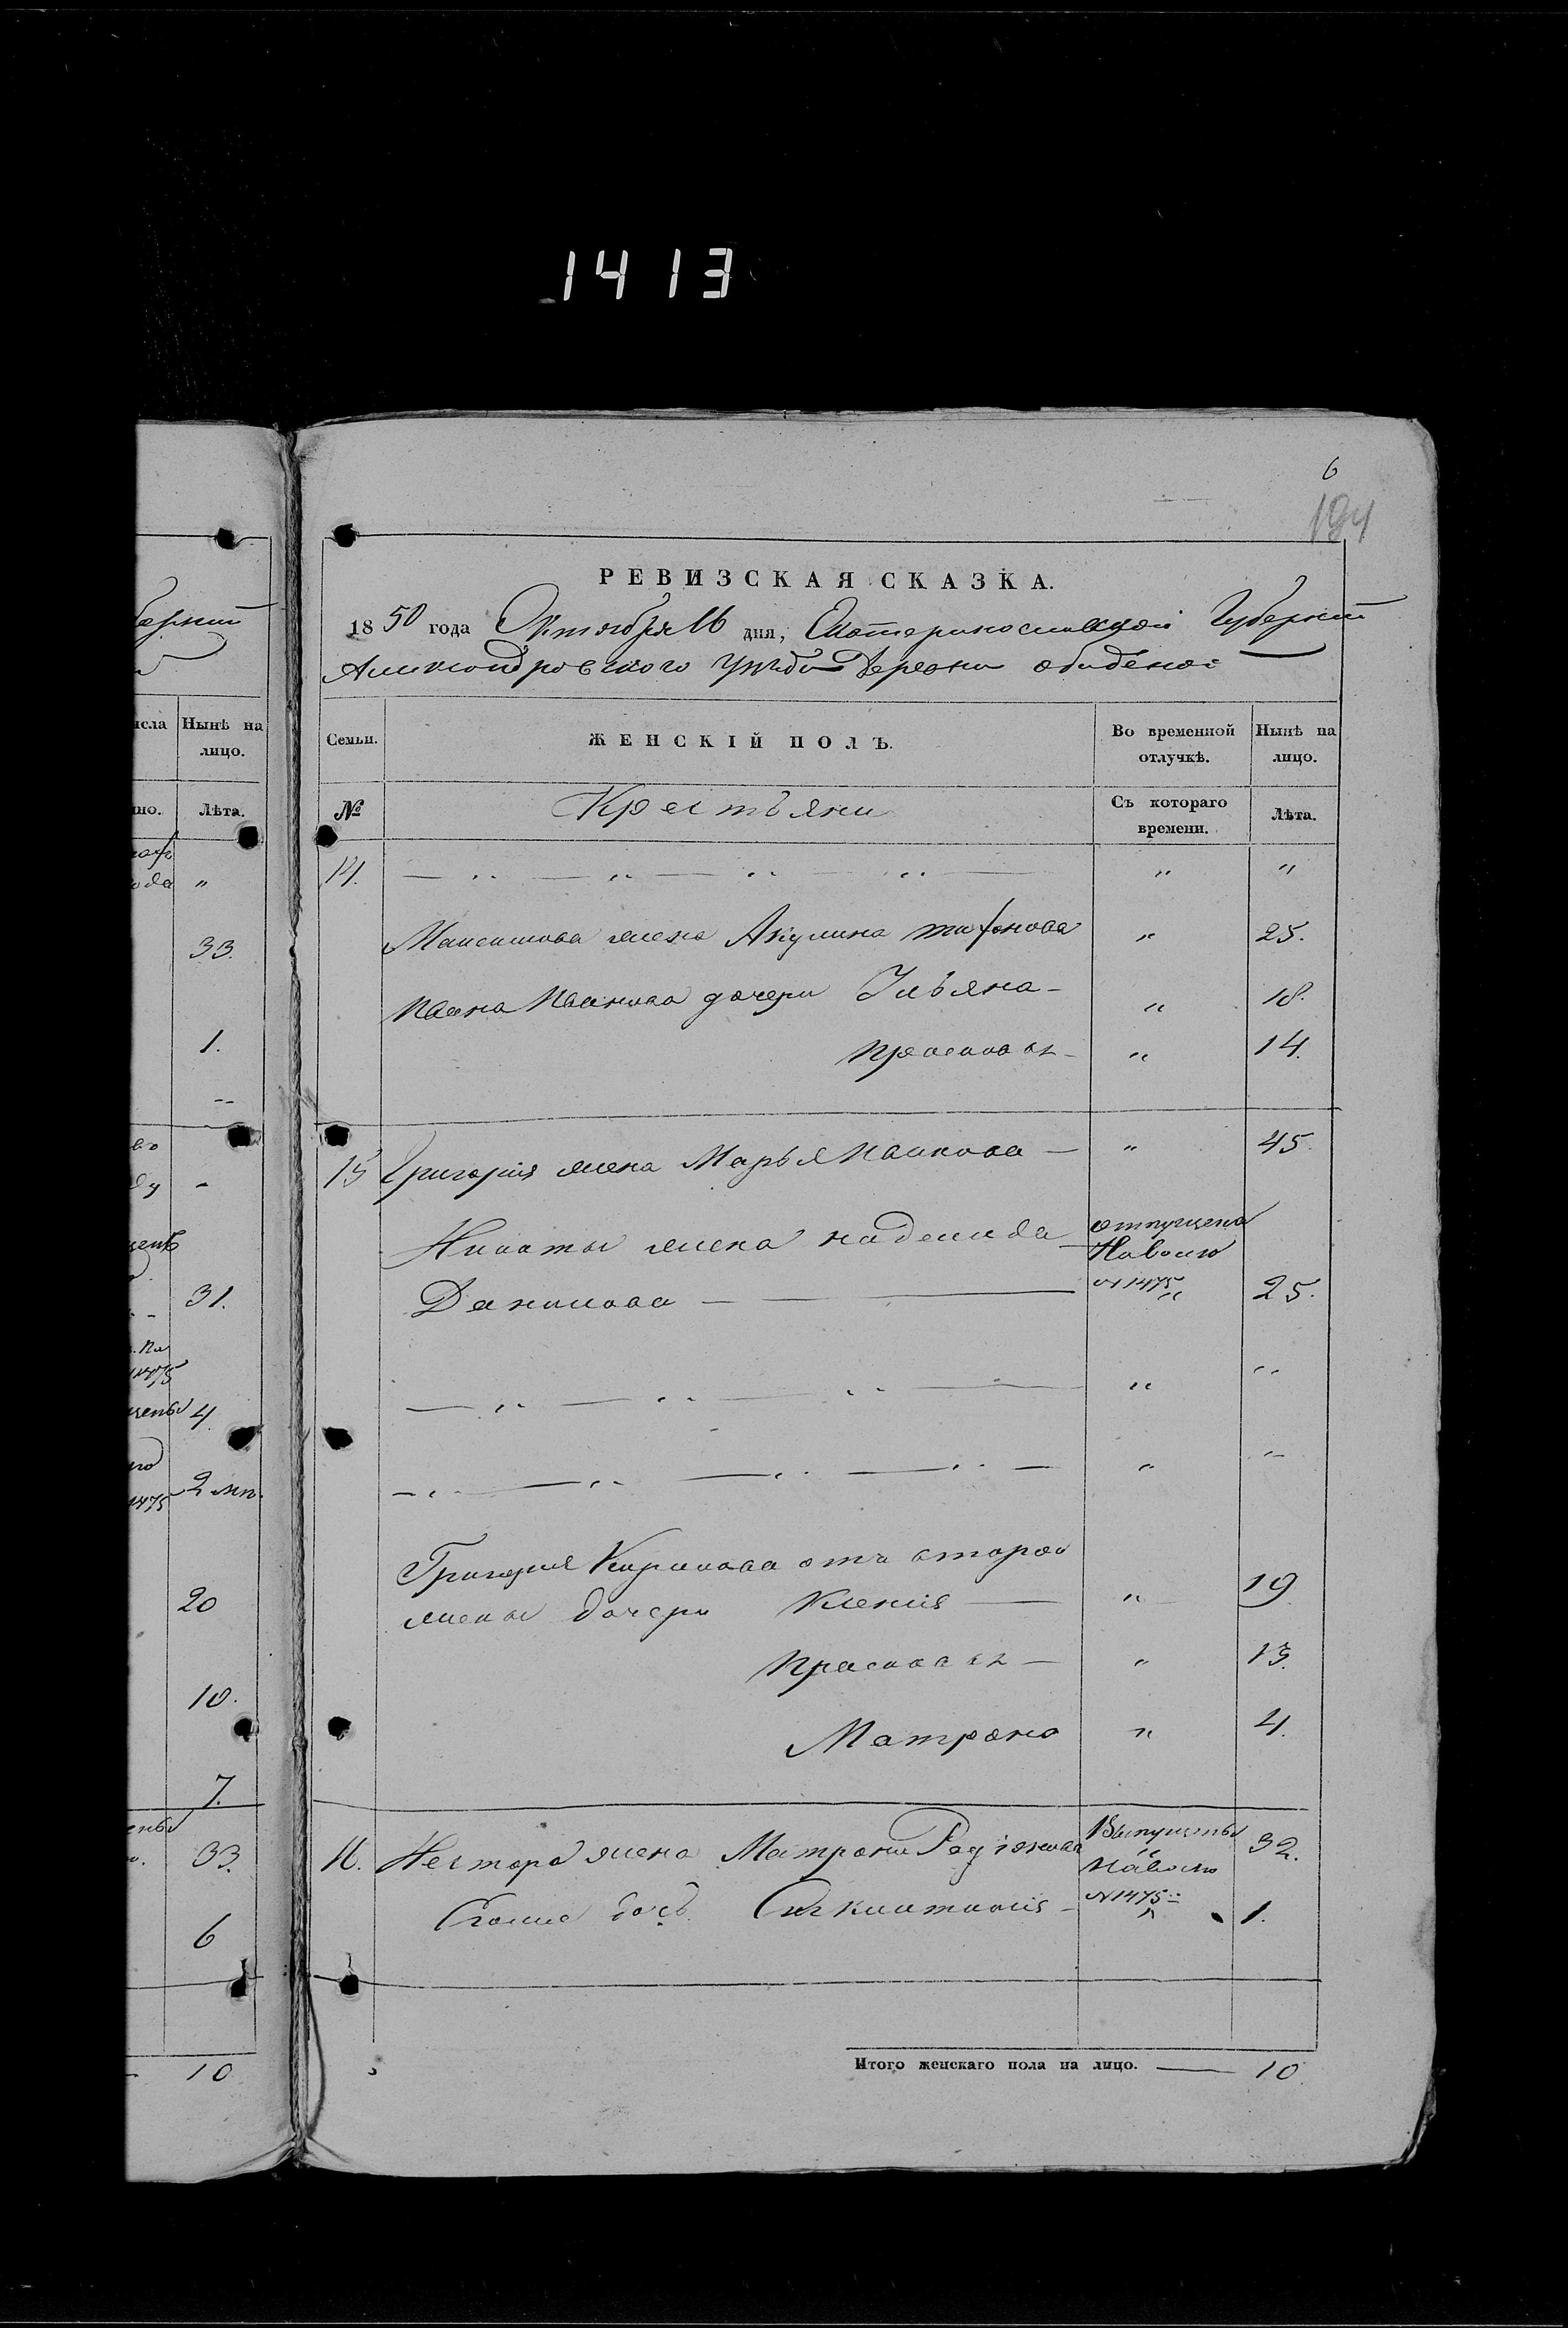 1413
6
194
РЕВИЗСКАЯ СКАЗКА.
1850 года Октября 16 дня, Екатеринославской Губерніи
Александровского уезда Деревни
берніи
исла Нынѣ на лицо.
но. Лѣта.
Семьи. ЖЕНСКІЙ ПОЛЪ. Во временной отлучкѣ. Нынѣ на лицо.
№ Крестьяни Съ котораго времени. Лѣта.
ода "
33.
1.
31.
1475
4.
2 мц.
1475
20
10.
7.
33.
6
10
14. " "
Максимова жена Акулина " 25.
Ивана Иванова дочери Ульяна " 18.
Прасковья " 14.
15 Григорія жена Марья Иванова " 45.
Никиты жена Надежда отпущена
На волю
Данилова № 1475 25.
" "
" "
Григория Кирилова отъ второй
жены дочери Ксенія " 19
Прасковья " 13.
Матрона " 4.
16. Нестора жена Матрона Родіонова Выпущены 32.
На волю
дочь № 1475 1.
Итого женскаго пола на лицо. 10.